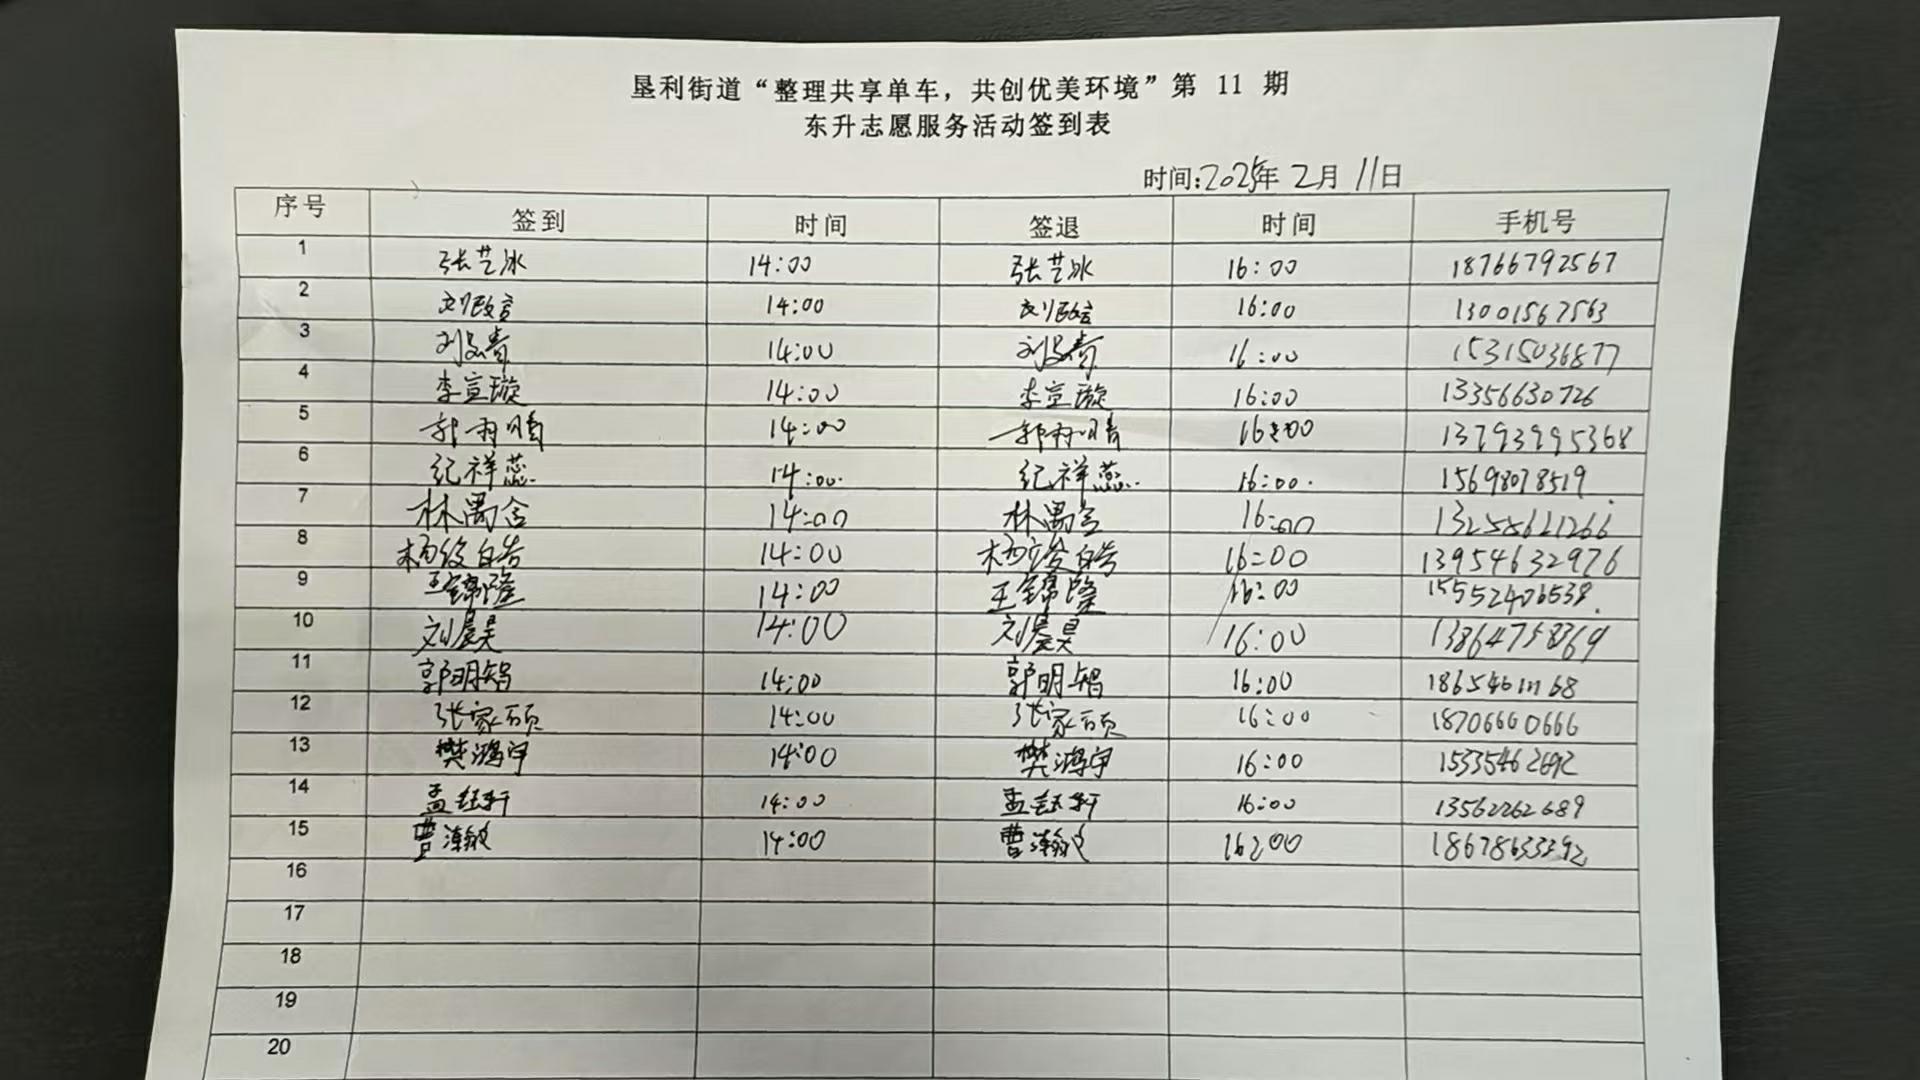 垦利街道“整理共享单车，共创优美环境”第 11 期
东升志愿服务活动签到表
时间:2025年 2月 11日
序号 签到 时间 签退 时间 手机号
1 张艺冰 14:00 张艺冰 16:00 18766792567
2 14:00 16:00 13001567563
3 14:00 16:00 15315036877
4 李宣璇 14:00 李宣璇 16:00 13356630726
5 郭雨晴 14:00 郭雨晴 16:00 13793995368
6 纪祥蕊 14:00 纪祥蕊 16:00 15698078519
7 林禹含 14:00 林禹含 16:00 13258621266
8 14:00 16:00 13954632976
9 王锦隆 14:00 王锦隆 16:00 15552406538
10 刘晨昊 14:00 刘晨昊 16:00 13864758369
11 郭明锱 14:00 郭明锱 16:00
12 张家硕 14:00 张家硕 16:00 18706660666
13 樊鸿宇 14:00 樊鸿宇 16:00 15335462692
14 孟钰轩 14:00 孟钰轩 16:00 13562262689
15 14:00 16:00 18678633392
16
17
18
19
20